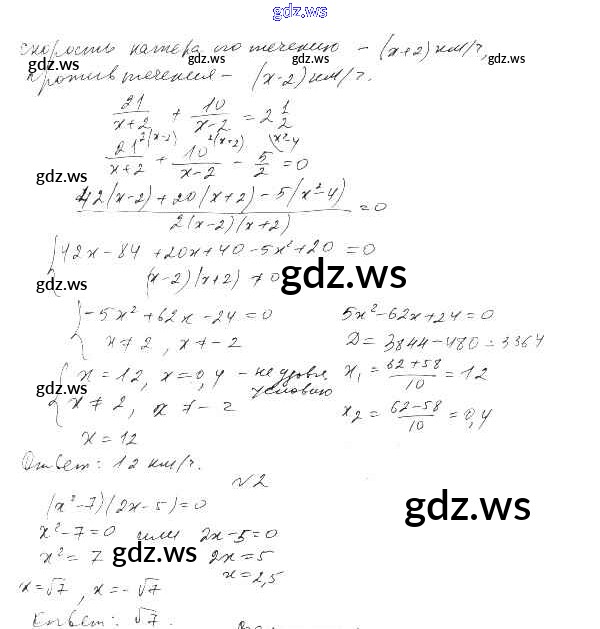 gdz.ws
скорость катера по течению – (x+2) км/ч,
gdz.ws gdz.ws gdz.ws
против течения – (x-2) км/ч.
21/(x+2) + 10/(x-2) = 2 1/2
21^{2(x-2)}/(x+2) + 10^{2(x+2)}/(x-2) - 5^{x²-4}/2 = 0
gdz.ws gdz.ws
(42(x-2)+20(x+2)-5(x²-4))/(2(x-2)(x+2)) = 0
{42x-84+20x+40-5x²+20=0
(x-2)(x+2)≠0
gdz.ws gdz.ws
{-5x²+62x-24=0 5x²-62x+24=0
x≠2, x≠-2 D=3844-480=3364
{x=12, x=0,4 – не удовл. x₁=(62+58)/10=12
gdz.ws условию
x≠2, x≠-2 x₂=(62-58)/10=0,4
x=12
Ответ: 12 км/ч.
№2
(x²-7)(2x-5)=0
gdz.ws
x²-7=0 или 2x-5=0
x²=7 gdz.ws 2x=5
x=√7, x=-√7 x=2,5
Ответ: √7.